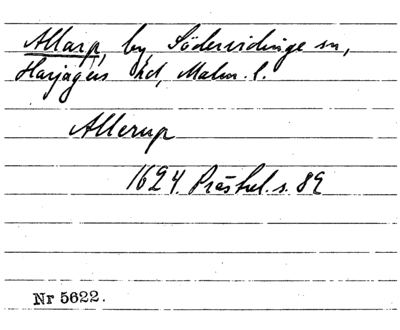 Allarp, by, Södervidinge sn,
Harjagers hd, Malm. l.
Allerup
1624. Prästrel. s. 89
Nr 5622.